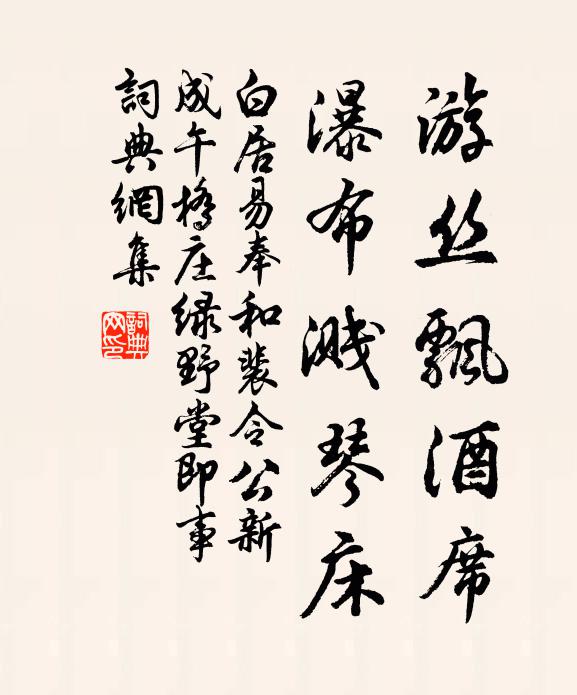 游丝飘酒席
瀑布溅琴床
白居易奉和裴令公新
成午桥庄绿野堂即事
詞典網集
詞典
网印